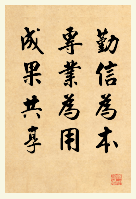 勤信為本
專業為用
成果共享